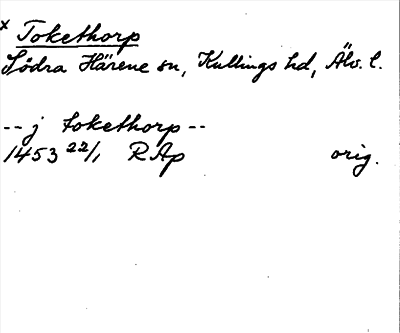 x Tokethorp
Södra Härene sn, Kullings hd, Älv. l.
-- j tokethorp --
1453 22/1 RAp orig.